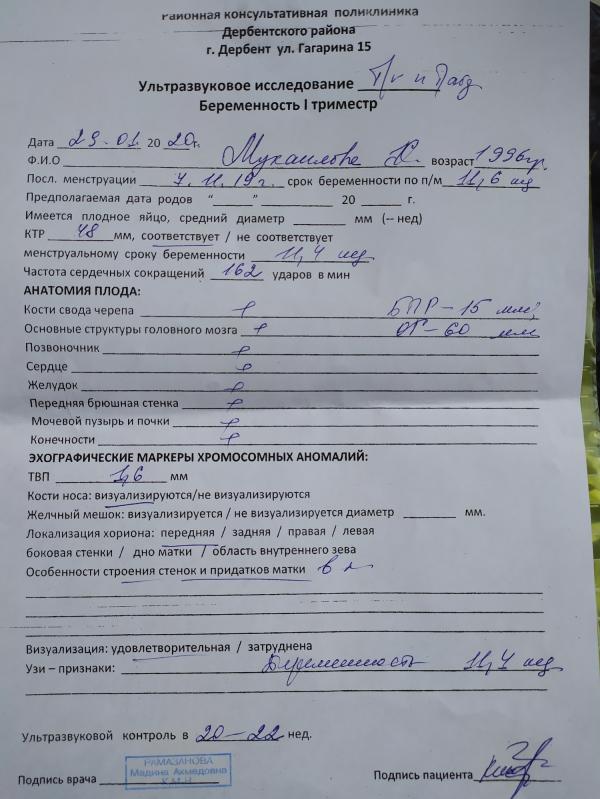 Районная консультативная поликлиника
Дербентского района
г. Дербент ул. Гагарина 15
Ультразвуковое исследование
Беременность I триместр
Дата 29.01. 2020г.
Ф.И.О Мукаилова К. возраст 1996гр.
Посл. менструации 7.11.19г. срок беременности по п/м 11,6 нед
Предполагаемая дата родов “____” __________ 20 ____ г.
Имеется плодное яйцо, средний диаметр _______ мм (-- нед)
КТР 48 мм, соответствует / не соответствует
менструальному сроку беременности 11,4 нед
Частота сердечных сокращений 162 ударов в мин
АНАТОМИЯ ПЛОДА:
Кости свода черепа + БПР-15 мм;
Основные структуры головного мозга + ОГ-60 мм
Позвоночник +
Сердце +
Желудок +
Передняя брюшная стенка +
Мочевой пузырь и почки +
Конечности +
ЭХОГРАФИЧЕСКИЕ МАРКЕРЫ ХРОМОСОМНЫХ АНОМАЛИЙ:
ТВП 1,6 мм
Кости носа: визуализируются/не визуализируются
Желчный мешок: визуализируется / не визуализируется диаметр _______ мм.
Локализация хориона: передняя / задняя / правая / левая
боковая стенки / дно матки / область внутреннего зева
Особенности строения стенок и придатков матки в н
Визуализация: удовлетворительная / затруднена
Узи – признаки: Беременность 11,4 нед
Ультразвуковой контроль в 20-22 нед.
РАМАЗАНОВА
Мадина Ахмедовна
К.М.Н.
Подпись врача
Подпись пациента